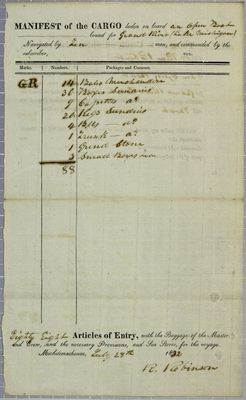 MANIFEST of the CARGO laden on board an Open Boat
bound for Grand River (in the Michigan)
Navigated by Ten men, and commanded by the
subscriber, viz.
Marks. Numbers. Packages and Contents.
GR 14 Bales Merchandise
36 Boxes Sundries
9 do
26 Kegs Sundries
4 Bbls — do
1 Trunk — do
1 Grind Stone
2 Small Boxes
88
Eighty Eight Articles of Entry, with the Baggage of the Master
and Crew, and the necessary Provisions, and Sea Stores, for the voyage.
Michilimackinac, July 28th 1822
R. Robinson